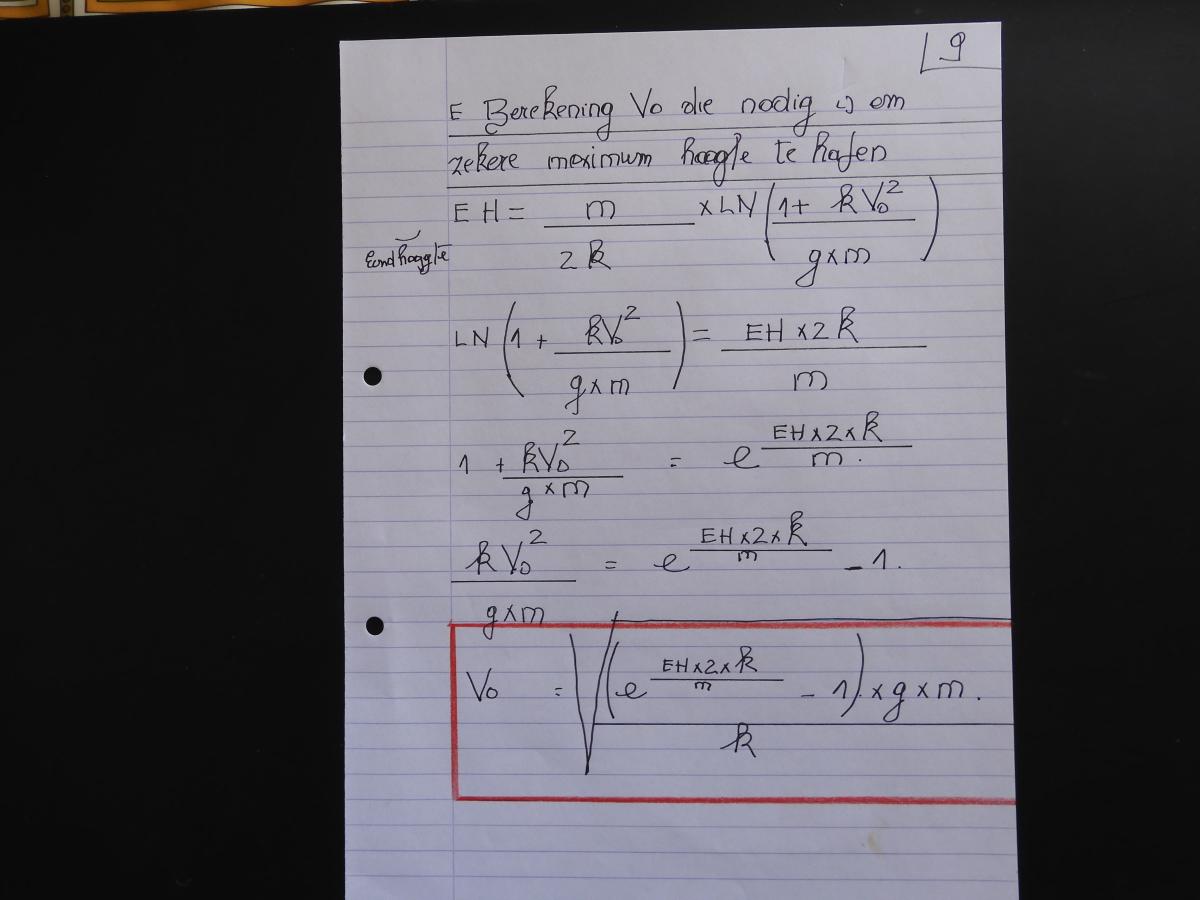 9
E Berekening Vo die nodig is om
zekere maximum hoogte te halen
EH = m / 2k × LN (1 + kV₀² / g×m)
Eindhoogte
LN (1 + kV₀² / g×m) = EH×2k / m
1 + kV₀² / g×m = e^(EH×2×k / m).
kV₀² / g×m = e^(EH×2×k / m) - 1.
Vo = √((e^(EH×2×k / m) - 1).×g×m. / k)